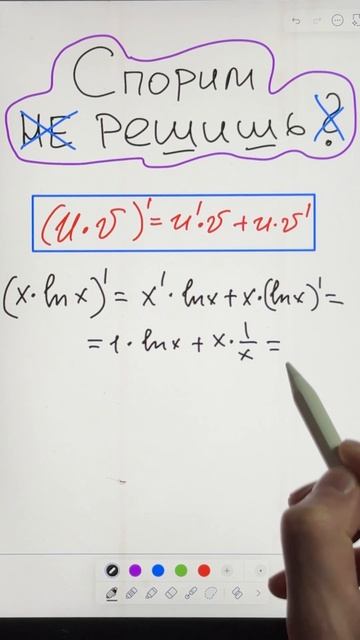 Спорим
НЕ РЕШИШЬ?
(u·v)'=u'·v+u·v'
(x·lnx)'=x'·lnx+x·(lnx)'=
=1·lnx+x·1/x=